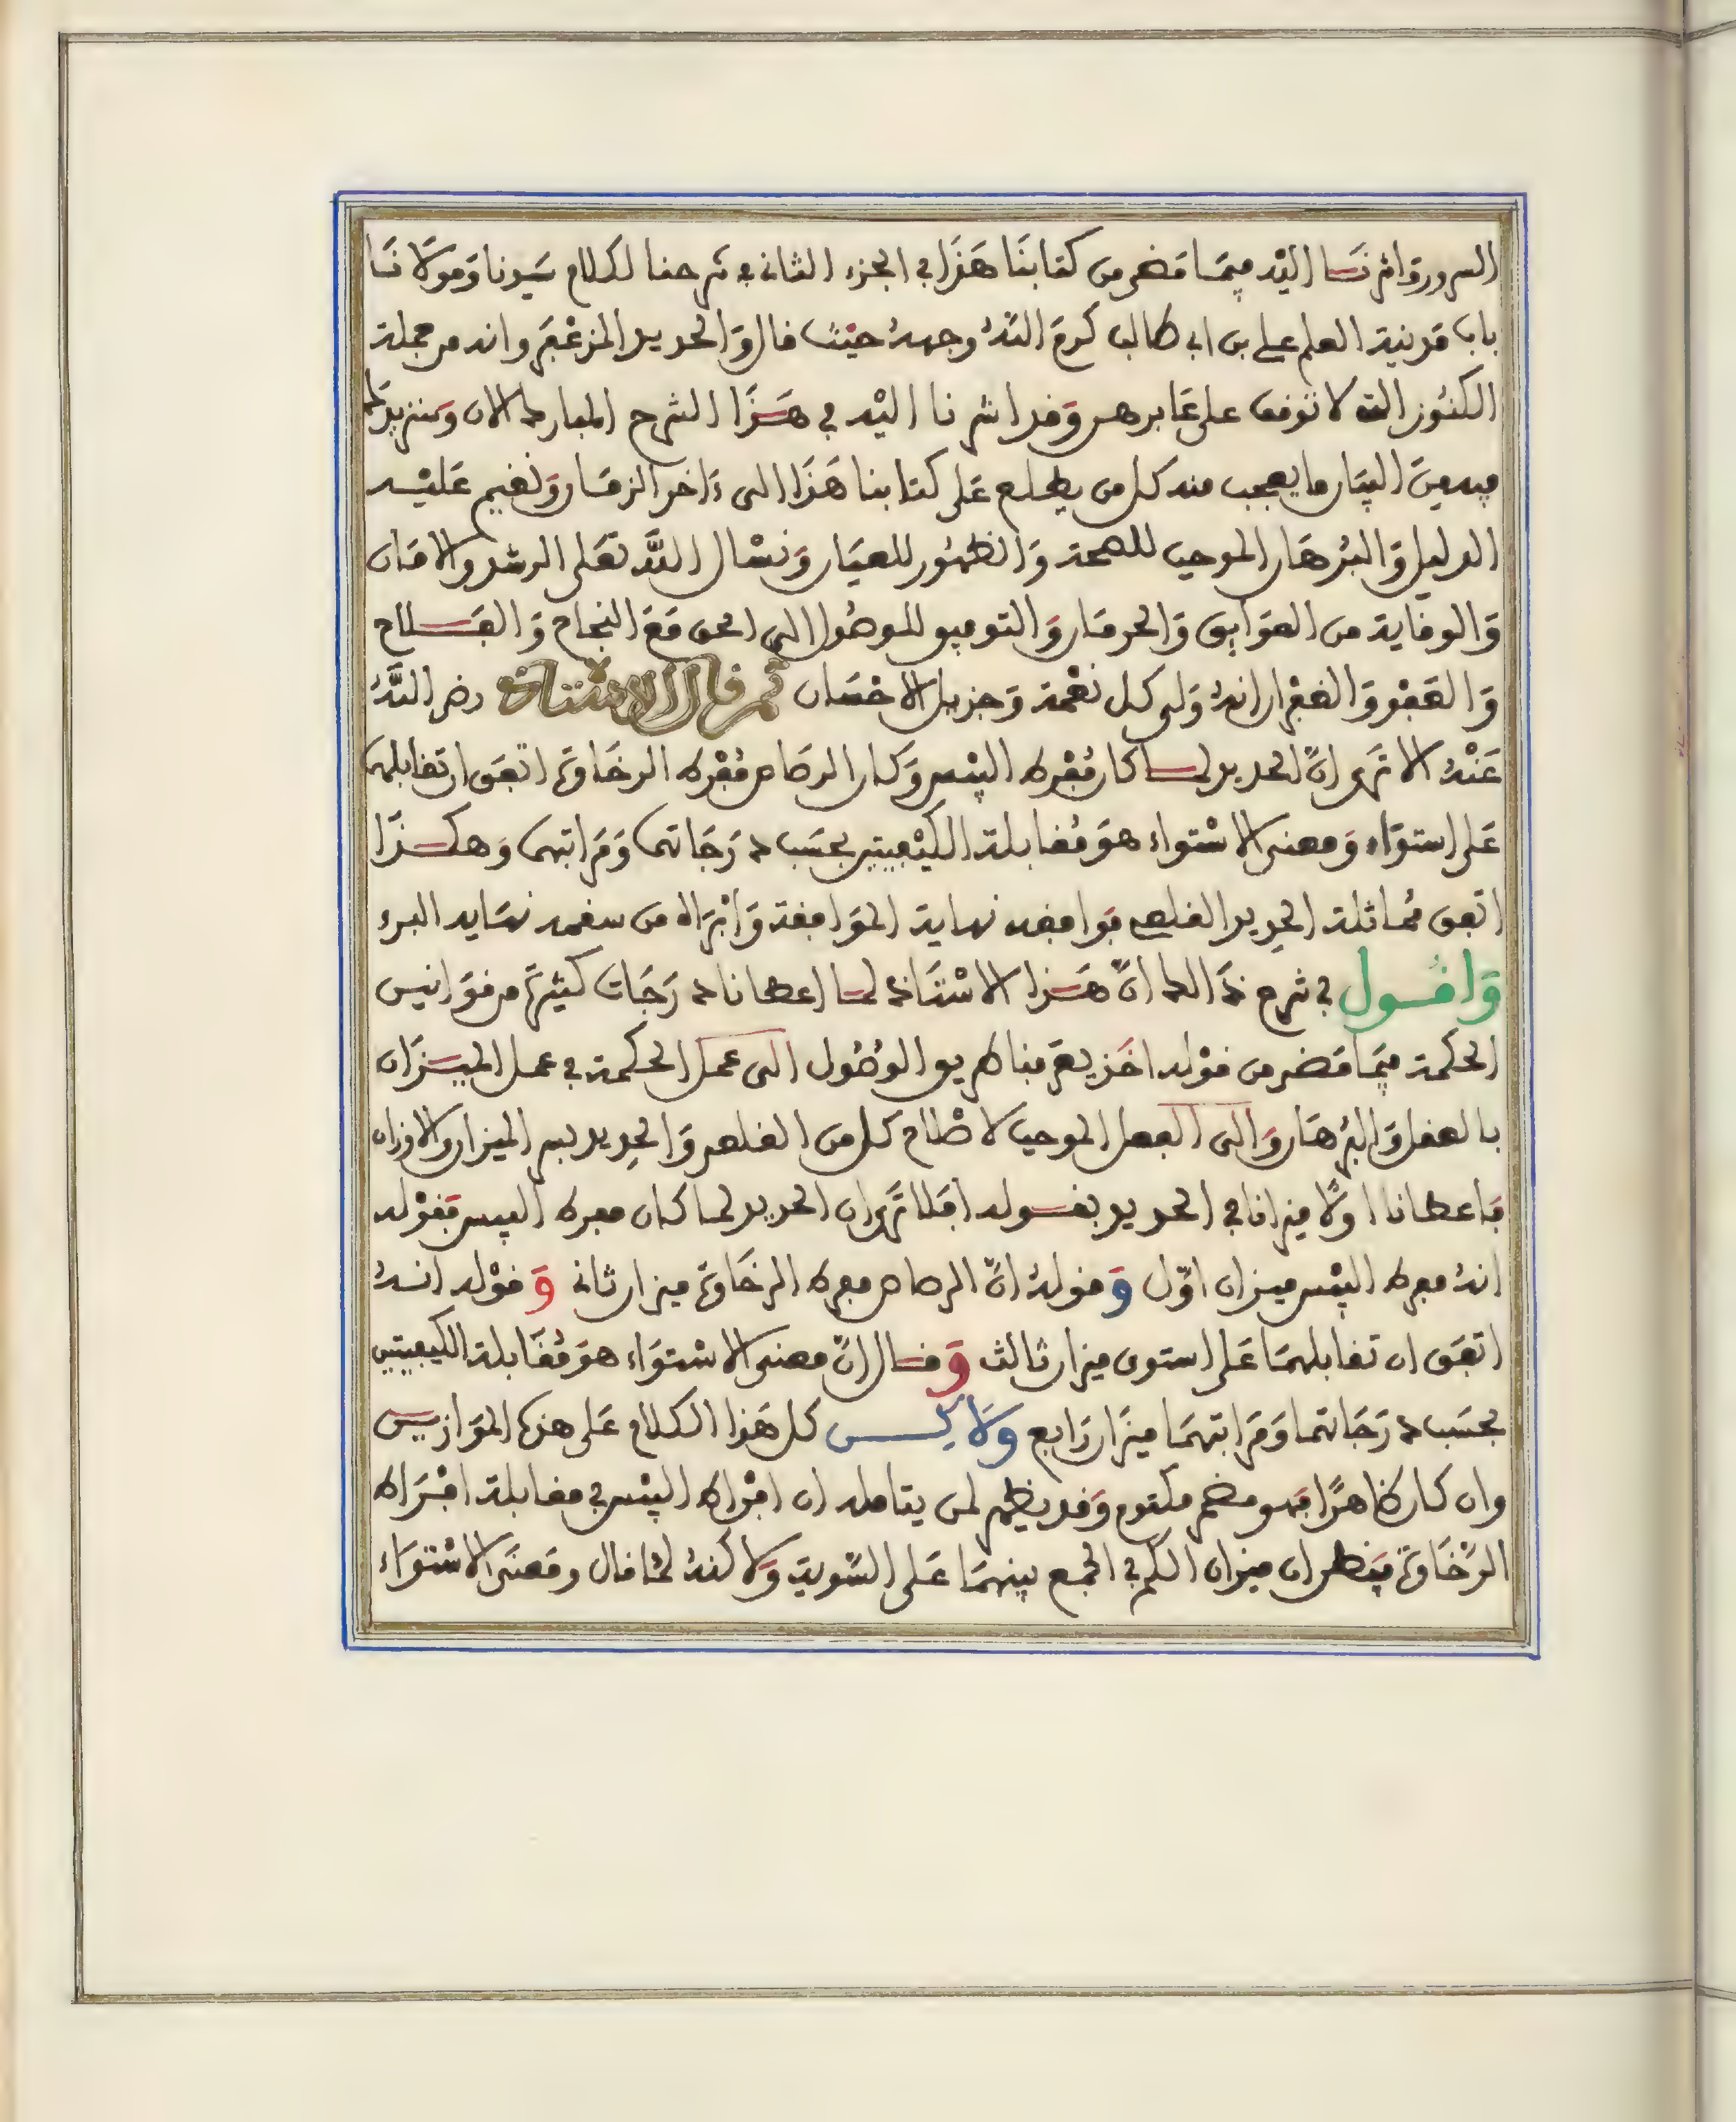 السرور واشرنا اليه فيما مضى من كتابنا هذا في الجزء الثاني في شرحنا لكلام سيدنا ومولانا
باب مدينة العلم علي بن ابي طالب كرم الله وجهه حيث قال والحديد المزعفر وانه من جملة
الكنوز التي لا توقف على غابرها وقد اشرنا اليه في هذا الشرح المبارك الان وسنزيدكم
فيه من البيان ما يعجب منه كل من يطلع على كتابنا هذا الى ءاخر الزمان ونقيم عليه
الدليل والبرهان الموجب للصحة والظهور للعيان ونسال الله تعلى الرشد والامان
والوقاية من العوايق والحرمان والتوفيق للوصول الى الحق مع النجاح والفلاح
والعفو والغفران انه ولي كل نعمة وجزيل الاحسان ثم قال الاستاذ رضي الله
عنه الا ترى ان الحديد لما كان مفرط اليبس وكان الرصاص مفرط الرخاوة اتفق ان تقابلهما
على استواء ومعنى الاستواء هو مقابلة الكيفيتين بحسب درجاتهما ومراتبهما وهكذا
اتفق مماثلة الحديد القلعي فوافقه نهاية الموافقة وابراه من سقمه نهاية البرء
واقول في شرح ذالك ان هذا الاستاذ لما اعطانا درجات كثيرة من قوانيس
الحكمة فيما مضى من قوله اخذ يعرفنا طريق الوصول الى عمل الحكمة في عمل الميزان
بالعقل والبرهان والى الفعل الموجب لاصلاح كل من القلعي والحديد بسر الميزان والاوزان
فاعطانا اولا ميزانا في الحديد بقوله افلا ترى ان الحديد لما كان مفرط اليبس فقوله
انه مفرط اليبس ميزان اول وقوله ان الرصاص مفرط الرخاوة ميزان ثاني وقوله انه
اتفق ان تقابلهما على استوى ميزان ثالث وقال ان معنى الاستواء هو مقابلة الكيفيتين
بحسب درجاتهما ومراتبهما ميزان رابع ولاكن كل هذا الكلام على هذه الموازين
وان كان ظاهرا فهو مضمر مكتوم وقد يظهر لمن يتامله ان افراط اليبس في مقابلة افراط
الرخاوة فيظهر ان ميزان الكم في الجمع بينهما على السوية ولاكنه لما قال ومعنى الاستواء